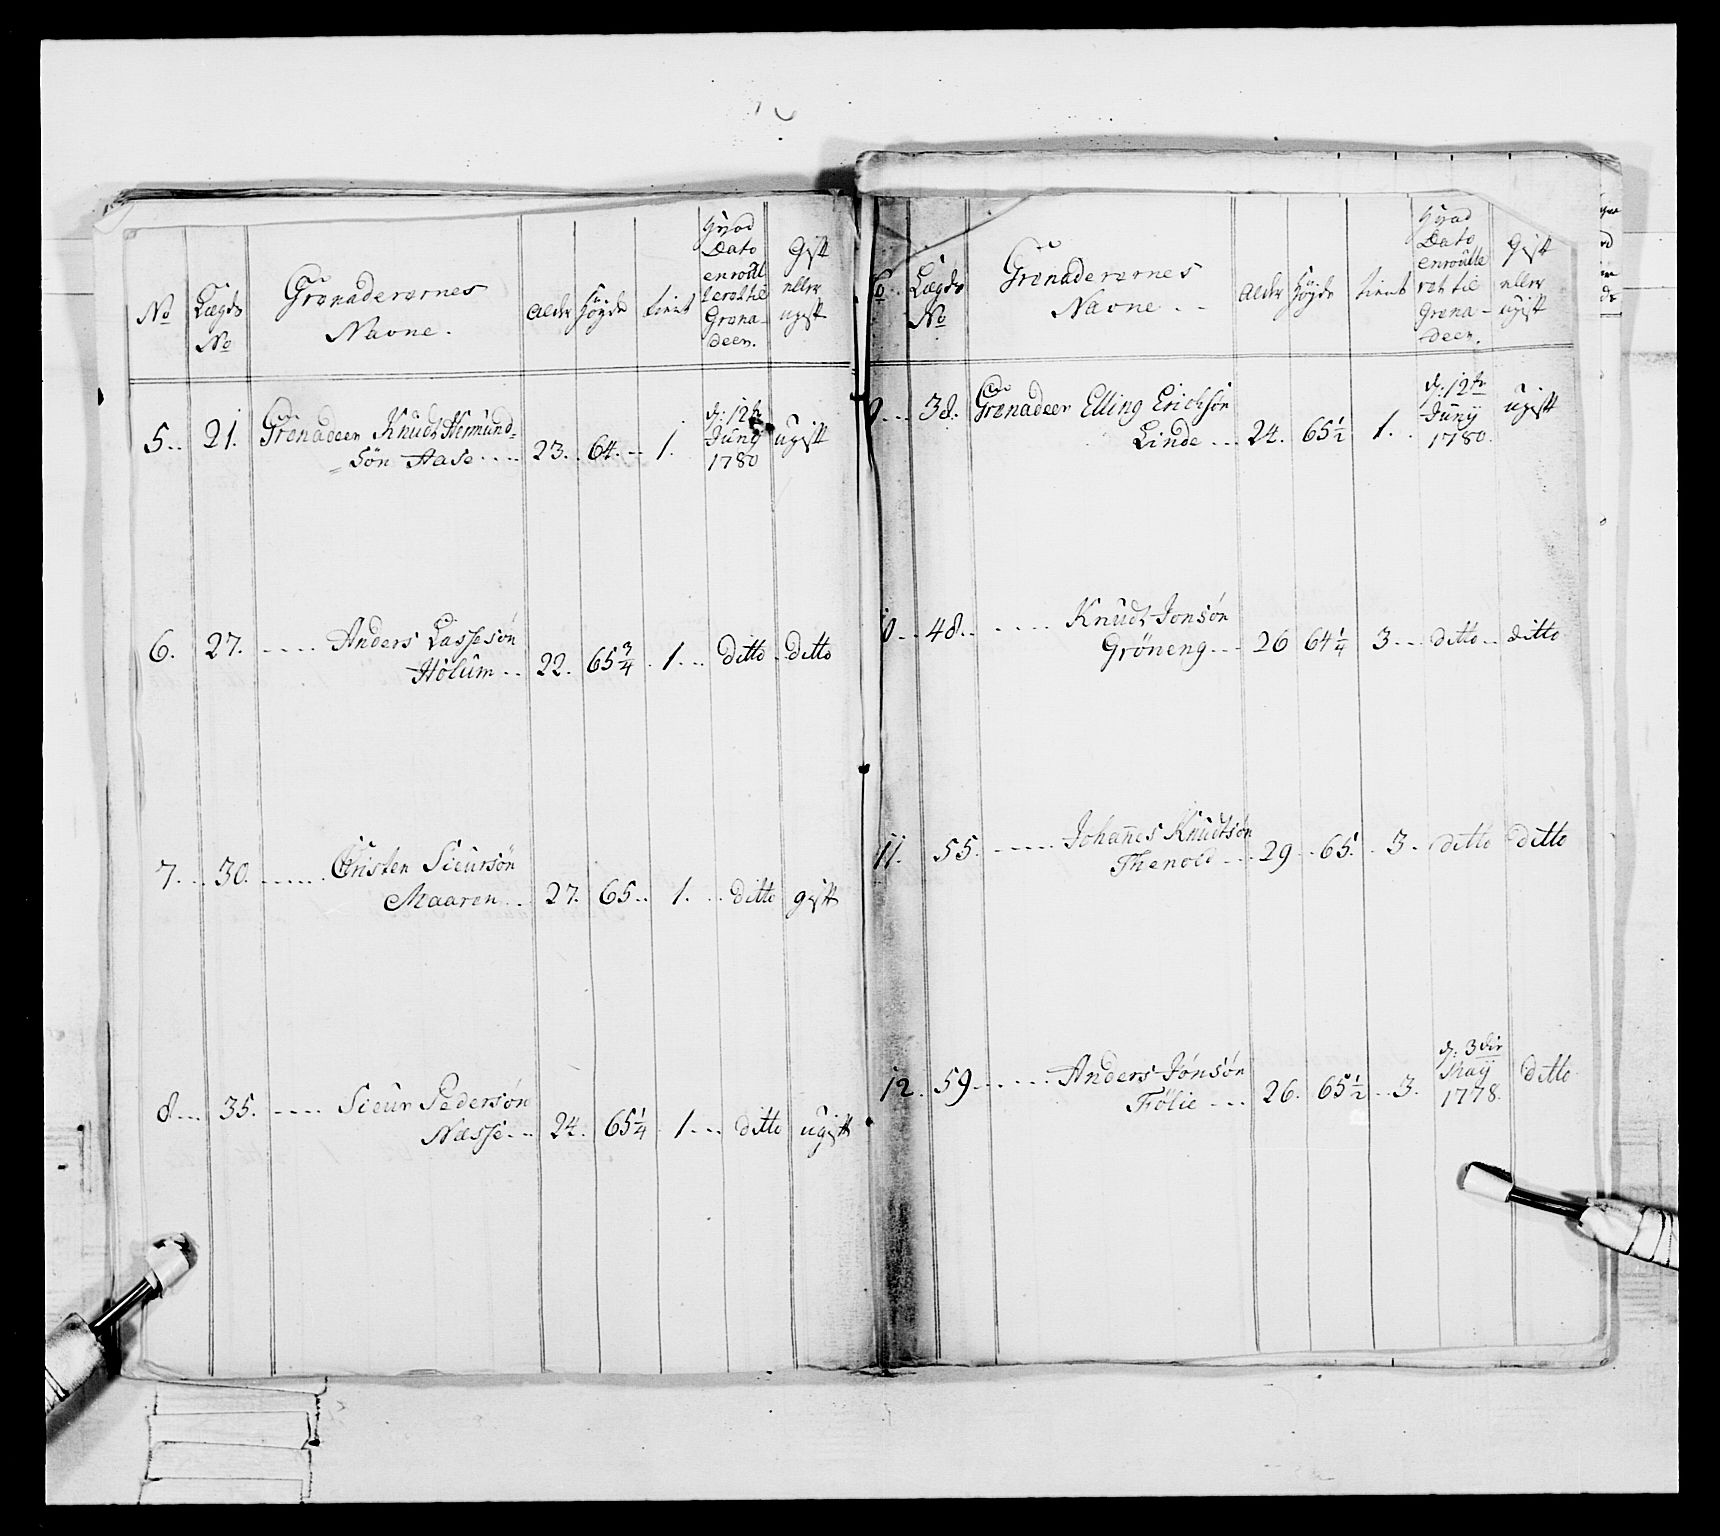 No
Lægds
No
Grenaderernes
Navne.
alder
Høyde
tient
hvad
Dato
enroull
eret til
Grena-
deer.
Gift
eller
ugift
5.. 21. Grenadeer Knudt Hermund=
=søn Aase.... 23. 64... 1. d: 12te Juny 1780 ugift
6. 27. ..... Anders Lassesøn
Hølum.. 22. 65 3/4. 1... ditto. ditto
7... 30. ...... Christen Siursøn
Maaren.. 27. 65.. 1. .. ditto gift
8... 35. ..... Sieur Pedersøn
Næsse... 24. 65 1/4 1... ditto ugift
Lægds
No
Grenaderernes
Navne..
alder
Høyde
tient
hvad
Dato
enroulle
ret til
Grena-
deer.
Gift
eller
ugift
... 38. Grenadeer Elling Erichsøn
Linde... 24. 65 1/2 1.. d: 12te Juny 1780. ugift
.. 48.. ..... Knudt Jonsøn
Grøneng... 26 64 1/4 3... ditto.. ditto
11. 55. ...... Johannes Knudtsøn
Thenold... 29.. 65. . 3. ditto ditto
12. 59....... Anders Jonsøn
Følie... 26. 65 1/2.. 3. d: 3die May 1778. ditto